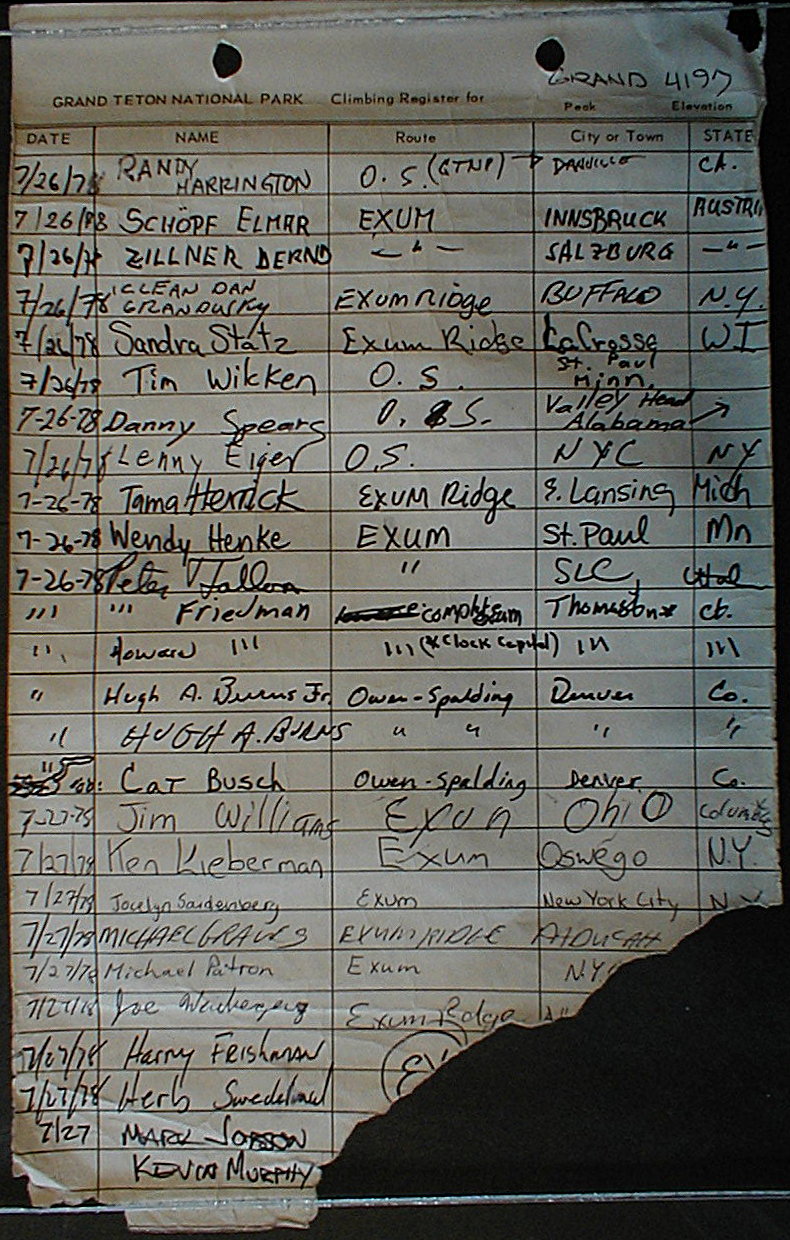 GRAND 4197
GRAND TETON NATIONAL PARK Climbing Register for Peak Elevation
DATE NAME Route City or Town STATE
7/26/78 RANDY HARRINGTON O. S. (GTNP) → DANVILLE CA.
7/26/88 SCHÖPF ELMAR EXUM INNSBRUCK AUSTRIA
7/26/78 ZILLNER BERND — " — SALZBURG — " —
7/26/78 DAN EXUM RIDGE BUFFALO N.Y.
7/26/78 Sandra Statz Exum Ridge LaCrosse WI
7/26/78 Tim Wilken O. S. St. Paul Minn.
7-26-78 Danny Spears O. S. Valley Head Alabama
7/26/78 Lenny Eiger O.S. NYC NY
7-26-78 Tama Herrick EXUM Ridge E. Lansing Mich
7-26-78 Wendy Henke EXUM St. Paul Mn
7-26-78 Peter " SLC, Utah
" " Friedman complete exum Thomaston* ct.
" Howard " " (*Clock Capital) " "
" Hugh A. Burns Jr. Owen-Spalding Denver Co.
" HUGH A. BURNS " " " "
" Cat Busch Owen-Spalding Denver Co.
7-27-78 Jim Williams Exum Ohio Columbus
7/27/78 Ken Lieberman Exum Oswego N.Y.
7/27/78 Jocelyn Saidenberg Exum New York City N.Y.
7/27/78 MICHAEL GRAVES EXUM RIDGE
7/27/78 Michael Patron Exum NYC
7/27/78 Joe Exum Ridge
7/27/78 Harry FRISHMAN EX
7/27/78 Herb
7/27 MARK JOBSON
KEVIN MURPHY